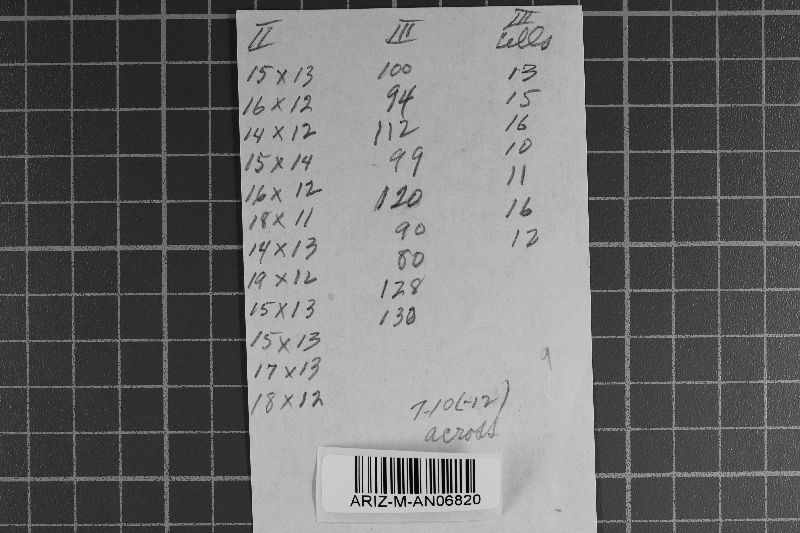 II III III
Cells
15 x 13 100 13
16 x 12 94 15
14 x 12 112 16
15 x 14 99 10
16 x 12 120 11
18 x 11 90 16
14 x 13 80 12
19 x 12 128
15 x 13 130
15 x 13
17 x 13
18 x 12
9
7-10(-12)
across
ARIZ-M-AN06820